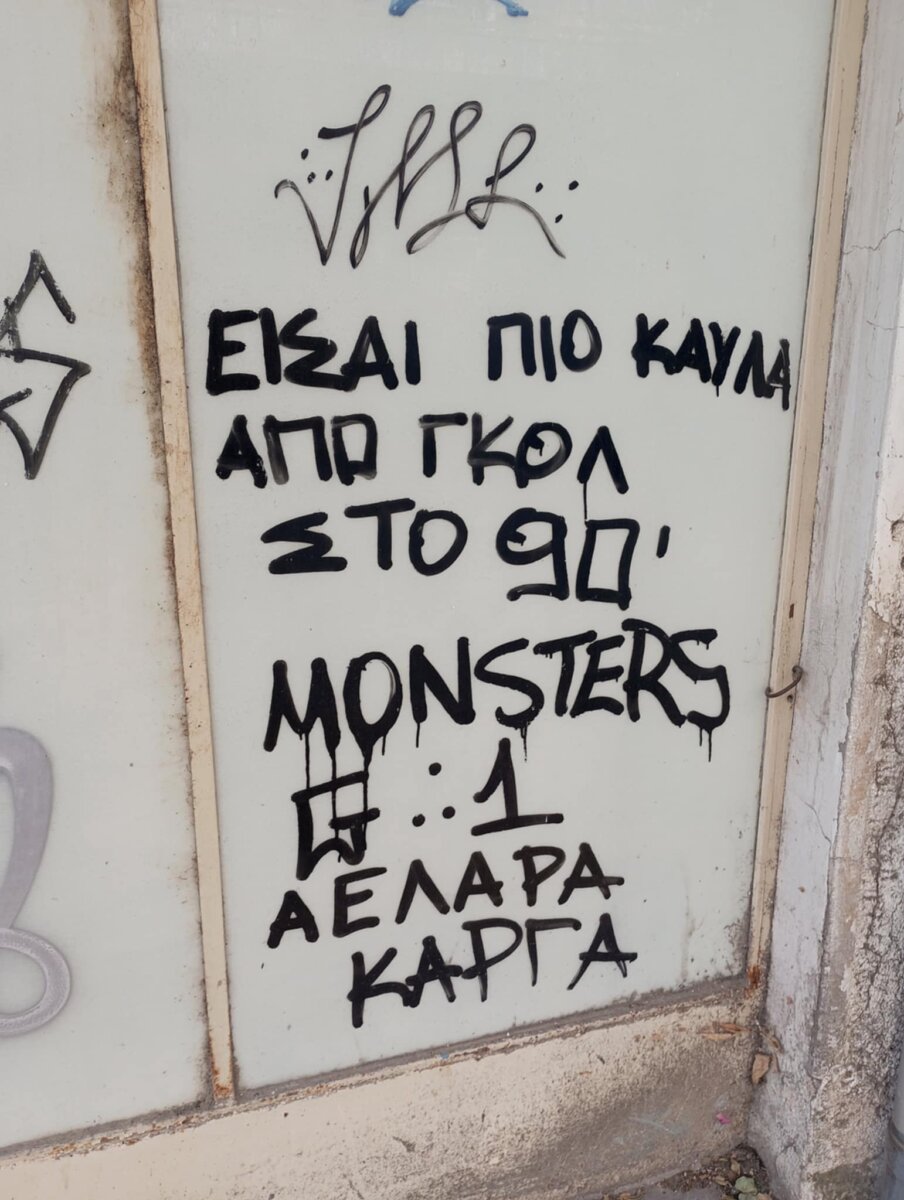 ΕΙΣΑΙ ΠΙΟ ΚΑΥΛΑ
ΑΠΟ ΓΚΟΛ
ΣΤΟ 90'
MONSTERS
1
ΑΕΛΑΡΑ
ΚΑΡΓΑ